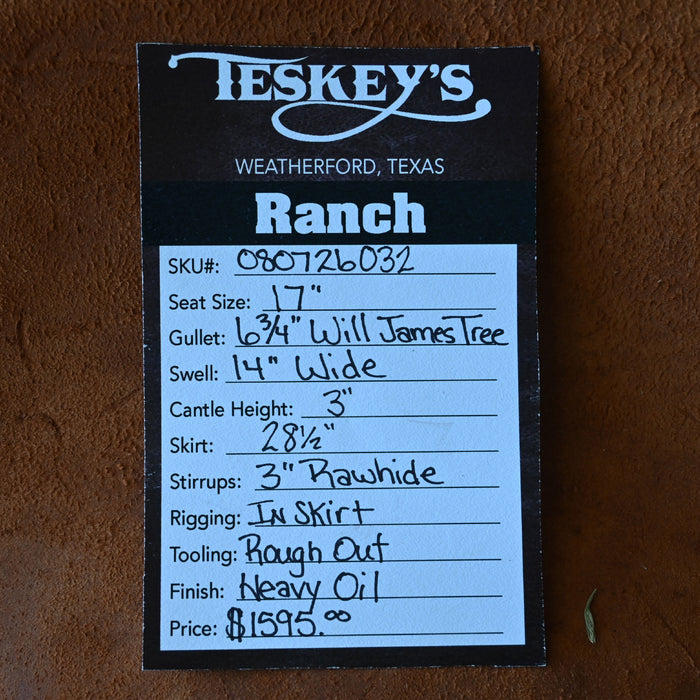 TESKEY'S
WEATHERFORD, TEXAS
Ranch
SKU#: 080726032
Seat Size: 17"
Gullet: 6 3/4" Will James Tree
Swell: 14" Wide
Cantle Height: 3"
Skirt: 28½"
Stirrups: 3" Rawhide
Rigging: In Skirt
Tooling: Rough Out
Finish: Heavy Oil
Price: $1595.00